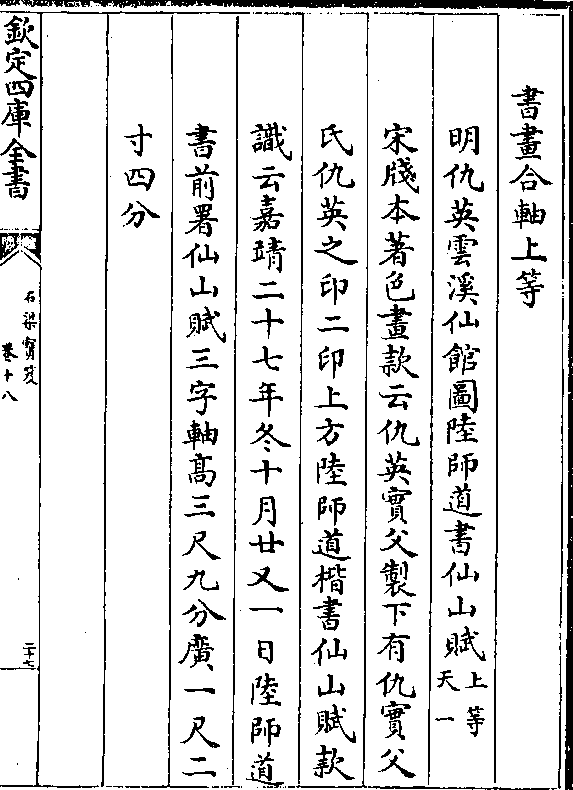 書畫合軸上等
明仇英雲溪仙館圖陸師道書仙山賦上等天一
宋牋本著色畫款云仇英實父製下有仇實父
氏仇英之印二印上方陸師道楷書仙山賦款
識云嘉靖二十七年冬十月廿又一日陸師道
書前署仙山賦三字軸髙三尺九分廣一尺二
寸四分
欽定四庫全書
石渠寳笈
卷十八
二十七